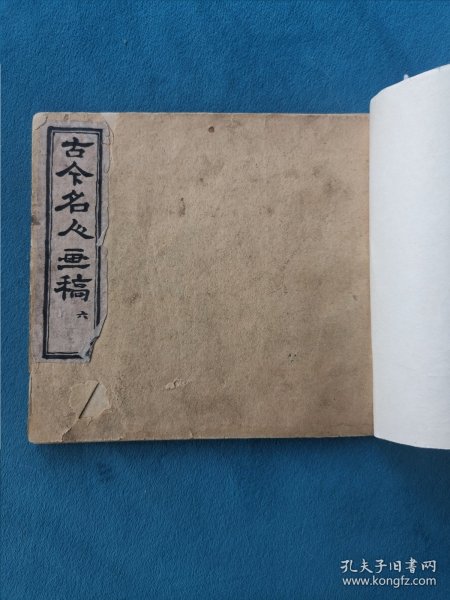 古今名人画稿
六
孔夫子旧书网
www.kongfz.com